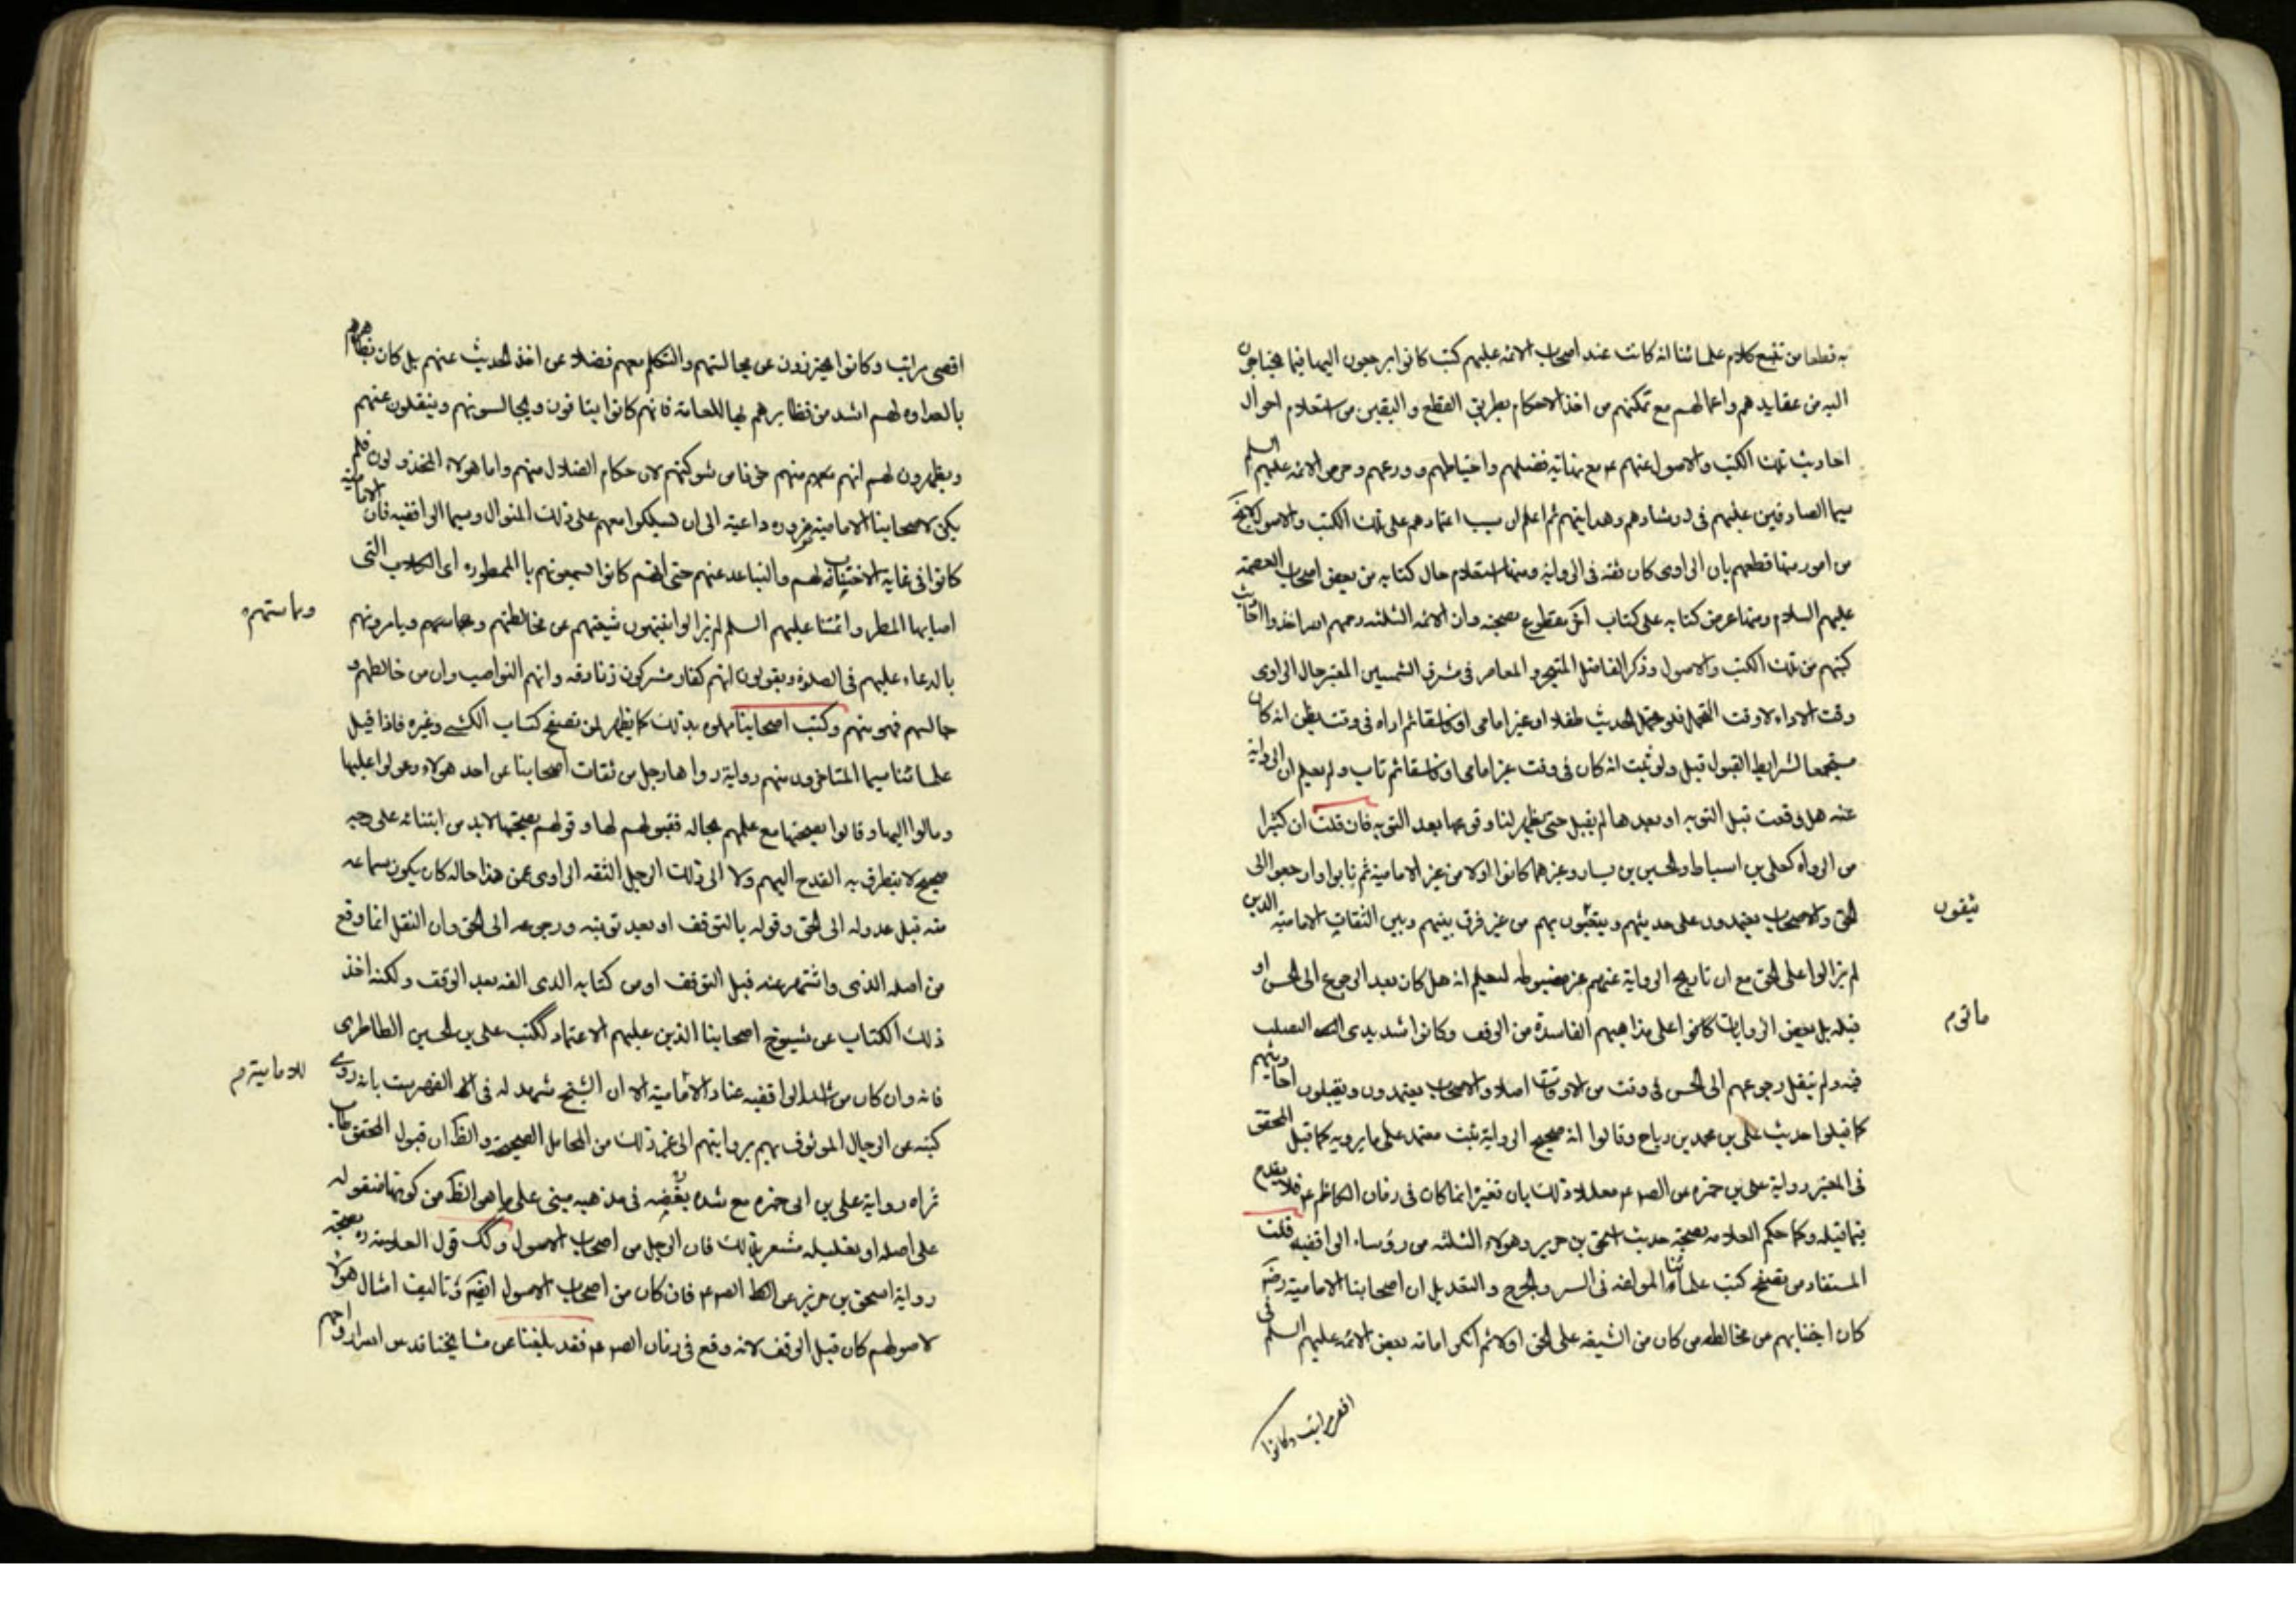 به قطعا من تتبع كلام علمائنا انه كانت عند اصحاب الائمه عليهم كتب كانوا يرجعون اليها فيما يحتاجون
اليه من عقايدهم واعمالهم مع تمكنهم من اخذ الاحكام بطريق القطع و اليقين من استعلام احوال
احاديث تلك الكتب والاصول عنهم ع مع نهاية فضلهم واحتياطهم وورعهم وحرص الائمه عليهم السلم
سيما الصادقين عليهم فى ارشادهم وهدايتهم ثم اعلم ان سبب اعتمادهم على تلك الكتب والاصول
من امور منها قطعهم بان الراوى كان ثقه فى الرواية ومنها استعلام حال كتابه من بعض اصحاب العصمة
عليهم السلام ومنها عرض كتابه على كتاب اخر مقطوع بصحته وان الائمه الثلثه رحمهم الله اخذوا احاديث
كتبهم من تلك الكتب والاصول وذكر الفاضل المتبحر المعاصر فى مشرق الشمسين المعتبر حال الراوى
وقت الاداء لا وقت التحمل فلو تحمل الحديث طفلا او غير امامى او فاسقا ثم اداه فى وقت يظن انه كان
مستجمعا لشرايط القبول قبل ولو ثبت انه كان فى وقت غير امامى او فاسقا ثم تاب ولم يعلم ان الرواية
عنه هل وقعت قبل التوبه او بعدها لم يقبل حتى يظهر لنا وقوعها بعد التوبه فان قلت ان كثيرا
من الرواه كعلى بن اسباط والحسين بن يسار وغيرهما كانوا اولا من غير الامامية ثم تابوا وارجعوا الى
الحق والاصحاب يعتمدون على حديثهم ويثقون بهم من غير فرق بينهم وبين الثقات الامامية الذين
يثقون
لم يزالوا على الحق مع ان تاريخ الرواية عنهم غير مضبوطه ليعلم انه هل كان بعد الرجوع الى الحق او
قبله بل بعض الروايات كانوا على مذاهبهم الفاسدة من الوقف وكانوا شديدى التصلب
ماتوا م
فيه ولم ينقل رجوعهم الى الحق فى وقت من الاوقات اصلا والاصحاب يعتمدون ويقبلون احاديثهم
كما قبلوا حديث على بن محمد بن رياح وقالوا انه صحيح الرواية ثبت معتمد على ما يرويه كما قبل المحقق
فى المعتبر رواية على بن حمزه عن الصم ع معللا ذلك بان تغيره انما كان فى زمان الكاظم ع فلا يقدح
فيما قبله وكما حكم العلامه بصحة حديث اسحق بن جرير وهؤلاء الثلثه من رؤساء الواقفيه قلت
المستفاد من تصفح كتب علمائنا المولفه فى السير والجرح والتعديل ان اصحابنا الامامية رضم
كان اجتنابهم من مخالطه من كان من الشيعه على الحق اولا ثم انكر امامه بعض الائمه عليهم السلم فى
اقصى مراتب وكانوا
اقصى مراتب وكانوا يحترزون عن مجالستهم والتكلم معهم فضلا عن اخذ الحديث عنهم بل كان تظاهرهم
بالعداوه لهم اشد من تظاهرهم بها للعامة فانهم كانوا يتاقون ويجالسونهم وينقلون عنهم
ويظهرون لهم انهم منهم خوفا من شوكتهم لان حكام الضلال منهم واما هولاء المخذولون فلم
يكن لاصحابنا الامامية ضروره داعية الى ان يسلكوا معهم على ذلك المنوال وسيما الواقفيه فان الامامية
كانوا فى غاية الاجتناب لهم والتباعد عنهم حتى انهم كانوا يسمونهم بالممطوره اى الكلاب التى
اصابها المطر وائمتنا عليهم السلم لم يزالوا ينهون شيعتهم عن مخالطتهم ومجالستهم ويامرونهم
بالدعاء عليهم فى الصلوة ويقولون انهم كفار مشركون زنادقه وانهم النواصب وان من خالطهم و
جالسهم فهو منهم وكتب اصحابنا مملوه بذلك كما يظهر لمن تصفح كتاب الكشى وغيره فاذا قبل
علمائنا سيما المتاخرون منهم رواية رواها رجل من ثقات اصحابنا عن احد هولاء وعولوا عليها
ومالوا اليها وقالوا بصحتها مع علمهم بحاله فقبولهم لها وقولهم بصحتها لابد من ابتنائه على وجه
صحيح لا يتطرق به القدح اليهم ولا الى ذلك الرجل الثقه الراوى عمن هذا حاله كان يكون سماعه
منه قبل عدوله الى الحق وقوله بالتوقف او بعد توبته ورجوعه الى الحق وان النقل انما وقع
من اصله الذى واشتهر عنه قبل التوقف او من كتابه الذى الفه بعد الوقف ولكنه اخذ
ذلك الكتاب عن شيوخ اصحابنا الذين عليهم الاعتماد ككتب على بن الحسين الطاطرى
فانه وان كان من اشد الواقفيه عنادا للامامية الا ان الشيخ شهد له فى الفهرست بانه روى
للامامية م
كتبه عن الرجال الموثوق بهم بروايتهم الى غير ذلك من المحامل الصحيحة والظ ان قبول المحقق طاب
ثراه رواية على بن ابى حمزه مع شده بغضه فى مذهبه مبنى على ما هو الظ من كونها منقوله
على اصله او تعليله مشعر بذلك فان الرجل من اصحاب الاصول وكك قول العلامه ره بصحة
رواية اسحق بن جرير عن الصم ع فان كان من اصحاب الاصول ايضم وتاليف امثال هولاء
لاصولهم كان قبل الوقف لانه وقع فى زمان الصم ع فقد بلغنا عن مشايخنا قدس ارواحهم